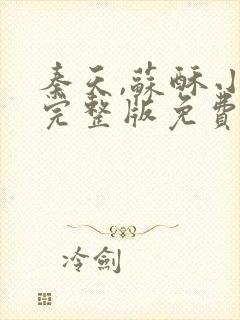 秦天,蘇酥小
完整版免費
冷劍